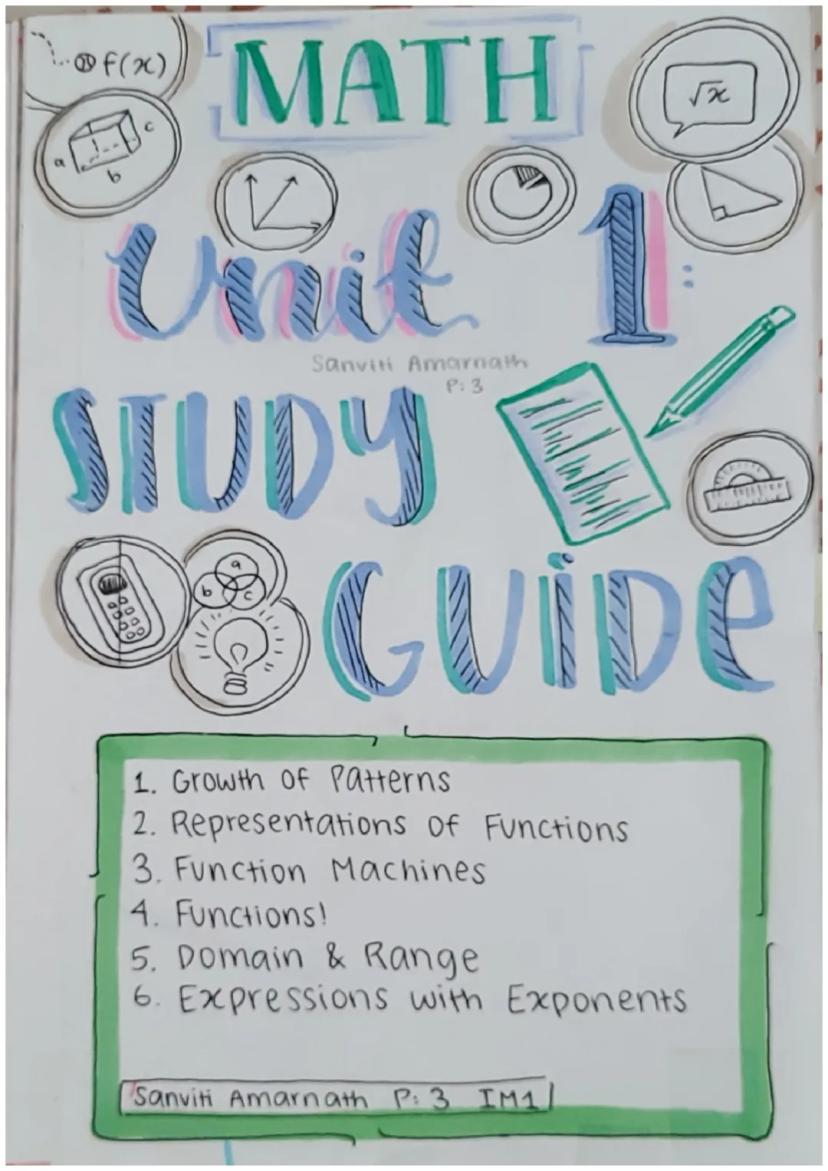 f(x)
MATH
√x
a
b
c
Unit 1:
Sanviti Amarnath
P: 3
STUDY
a
b
c
GUIDE
1. Growth of Patterns
2. Representations of Functions
3. Function Machines
4. Functions!
5. Domain & Range
6. Expressions with Exponents
Sanviti Amarnath P: 3 IM1